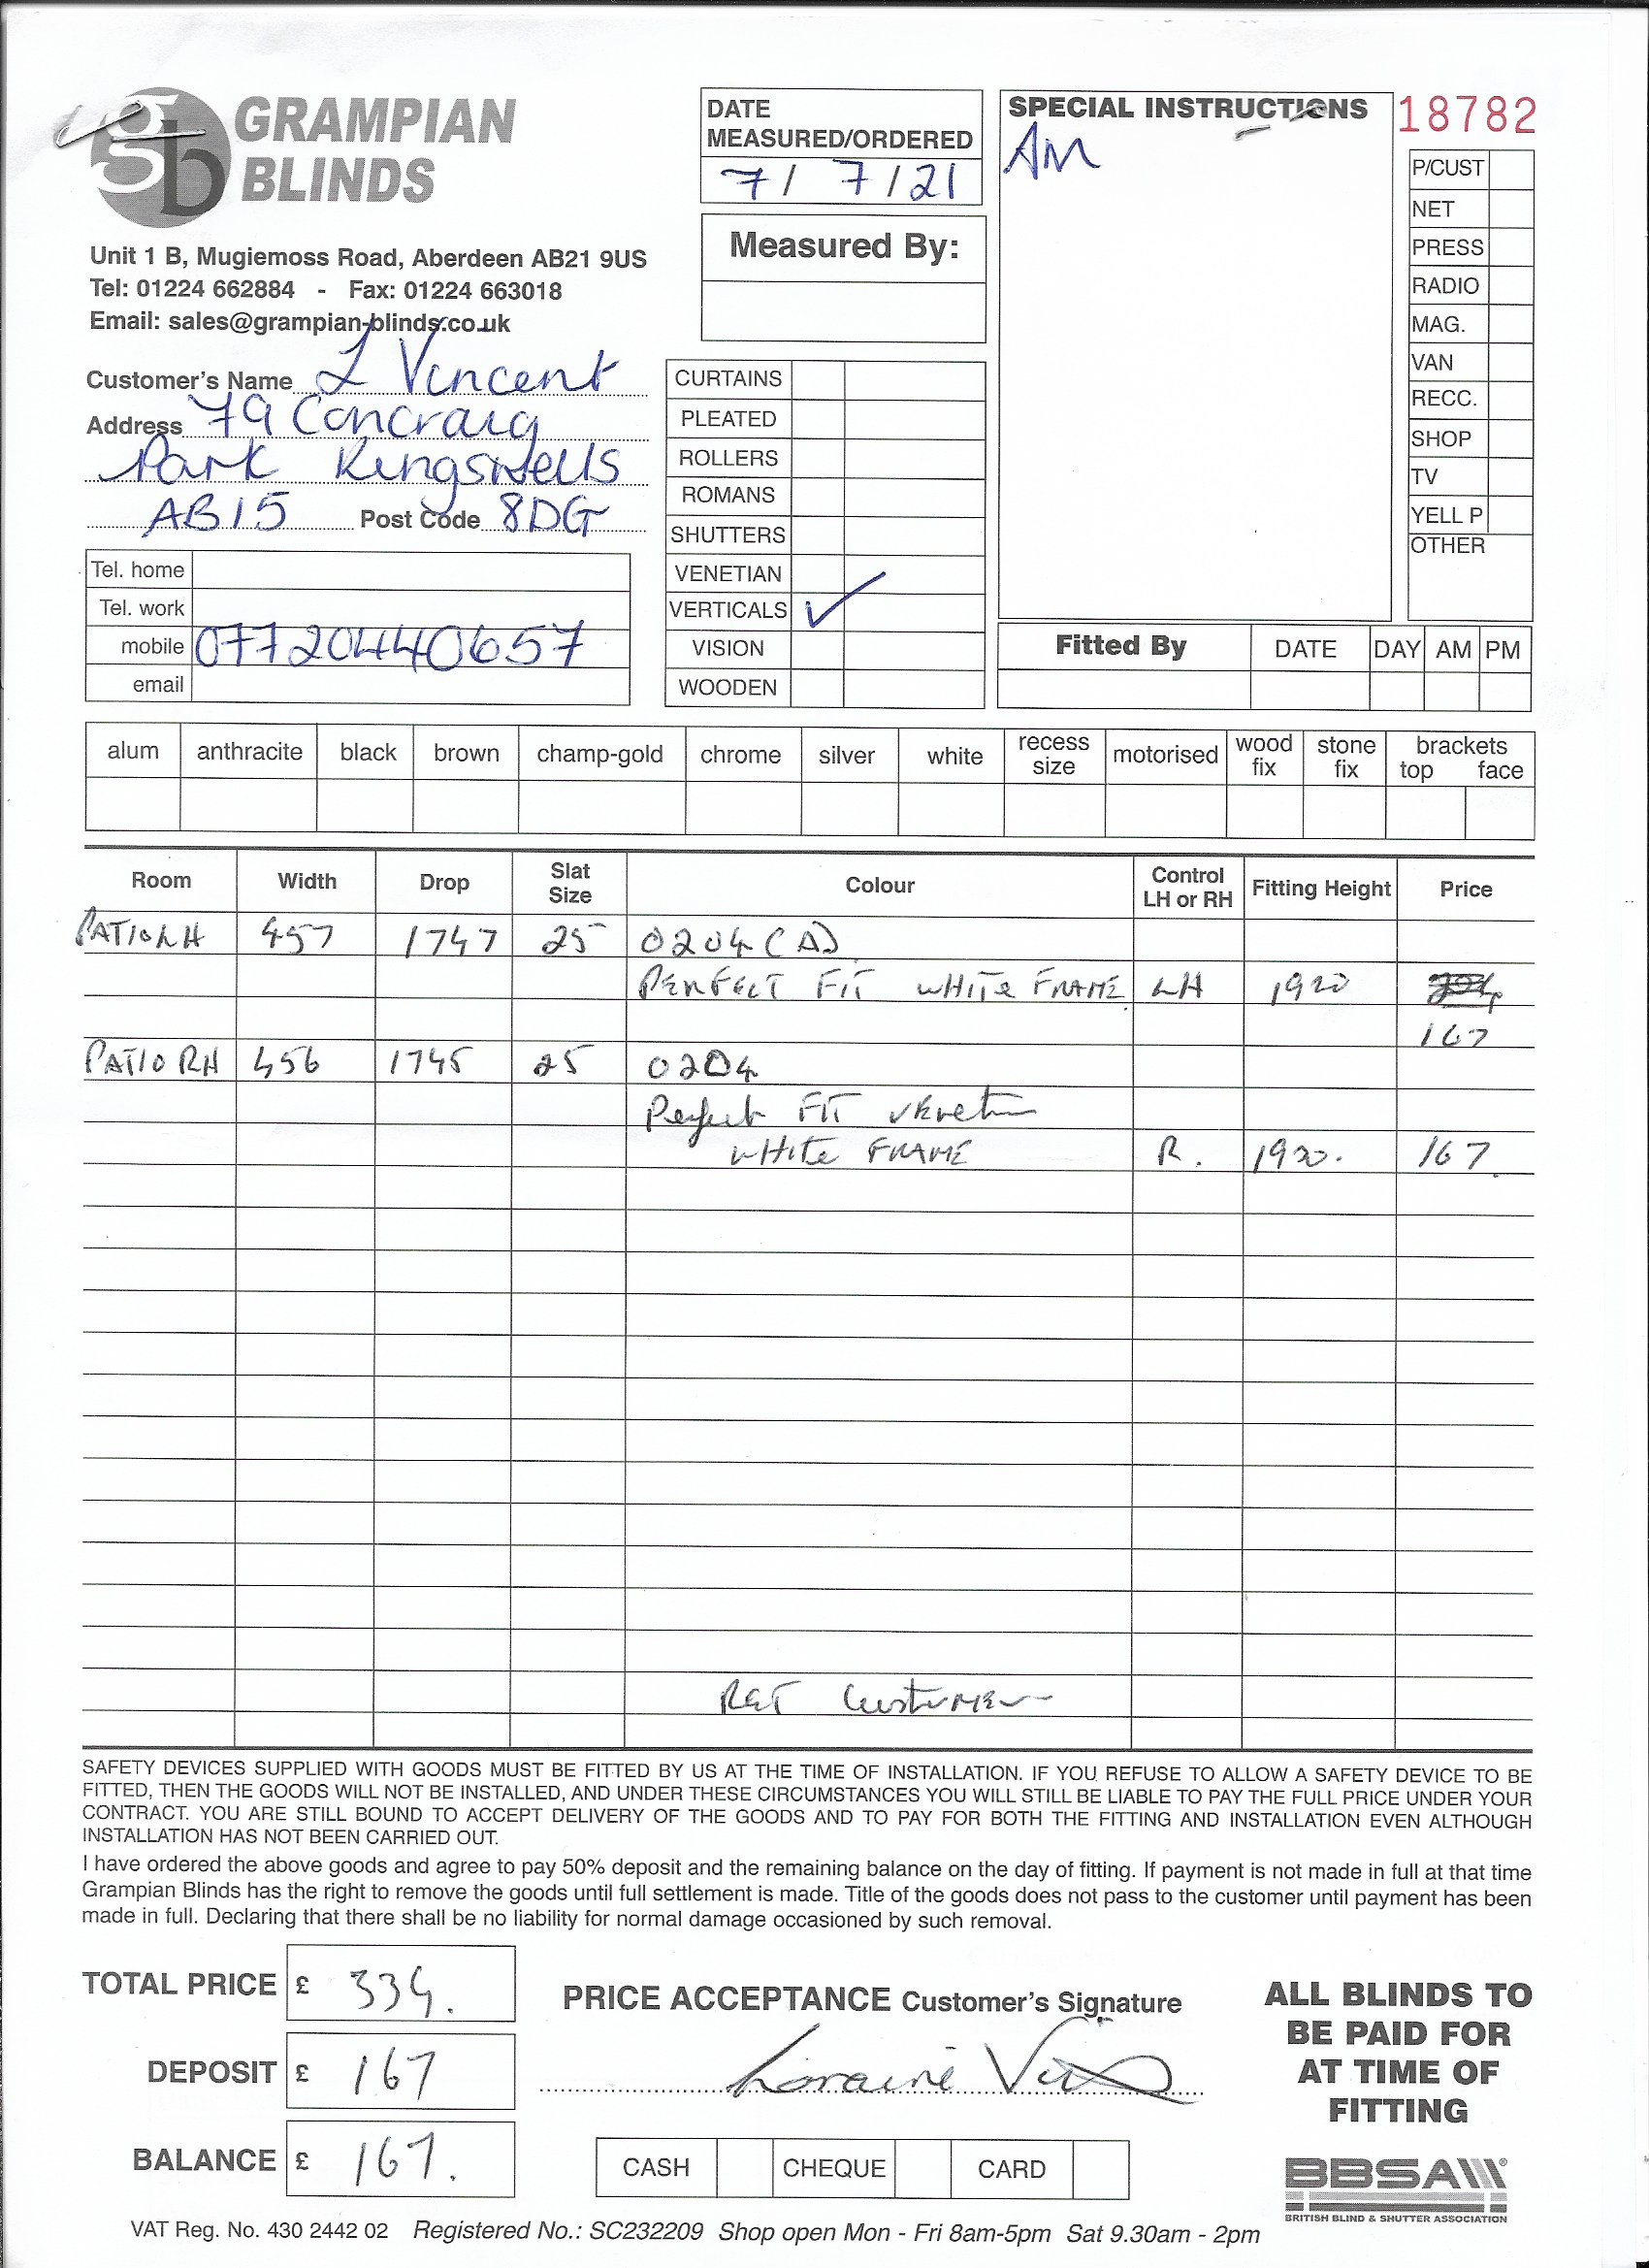 GRAMPIAN
BLINDS
Unit 1 B, Mugiemoss Road, Aberdeen AB21 9US
Tel: 01224 662884 - Fax: 01224 663018
Email: sales@grampian-blinds.co.uk
DATE
MEASURED/ORDERED
7/ 7/21
Measured By:
SPECIAL INSTRUCTIONS
AM
18782
P/CUST
NET
PRESS
RADIO
MAG.
VAN
RECC.
SHOP
TV
YELL P
OTHER
Customer's Name L Vincent
Address 79 Concraig
Park Kingswells
AB15 Post Code 8DG
Tel. home
Tel. work
mobile 07720440657
email
CURTAINS
PLEATED
ROLLERS
ROMANS
SHUTTERS
VENETIAN
VERTICALS ✓
VISION
WOODEN
Fitted By DATE DAY AM PM
alum anthracite black brown champ-gold chrome silver white recess size motorised wood fix stone fix brackets top face
Room Width Drop Slat Size Colour Control LH or RH Fitting Height Price
PATIO LH 457 1747 25 0204 (A)
PERFECT FIT WHITE FRAME LH 1920
167
PATIO RH 456 1745 25 0204
Perfect FIT
WHITE FRAME R. 1920. 167.
RET Customer
SAFETY DEVICES SUPPLIED WITH GOODS MUST BE FITTED BY US AT THE TIME OF INSTALLATION. IF YOU REFUSE TO ALLOW A SAFETY DEVICE TO BE
FITTED, THEN THE GOODS WILL NOT BE INSTALLED, AND UNDER THESE CIRCUMSTANCES YOU WILL STILL BE LIABLE TO PAY THE FULL PRICE UNDER YOUR
CONTRACT. YOU ARE STILL BOUND TO ACCEPT DELIVERY OF THE GOODS AND TO PAY FOR BOTH THE FITTING AND INSTALLATION EVEN ALTHOUGH
INSTALLATION HAS NOT BEEN CARRIED OUT.
I have ordered the above goods and agree to pay 50% deposit and the remaining balance on the day of fitting. If payment is not made in full at that time
Grampian Blinds has the right to remove the goods until full settlement is made. Title of the goods does not pass to the customer until payment has been
made in full. Declaring that there shall be no liability for normal damage occasioned by such removal.
TOTAL PRICE £ 334.
DEPOSIT £ 167
BALANCE £ 167.
PRICE ACCEPTANCE Customer's Signature
Lorraine
CASH CHEQUE CARD
ALL BLINDS TO
BE PAID FOR
AT TIME OF
FITTING
BBSA
BRITISH BLIND & SHUTTER ASSOCIATION
VAT Reg. No. 430 2442 02 Registered No.: SC232209 Shop open Mon - Fri 8am-5pm Sat 9.30am - 2pm